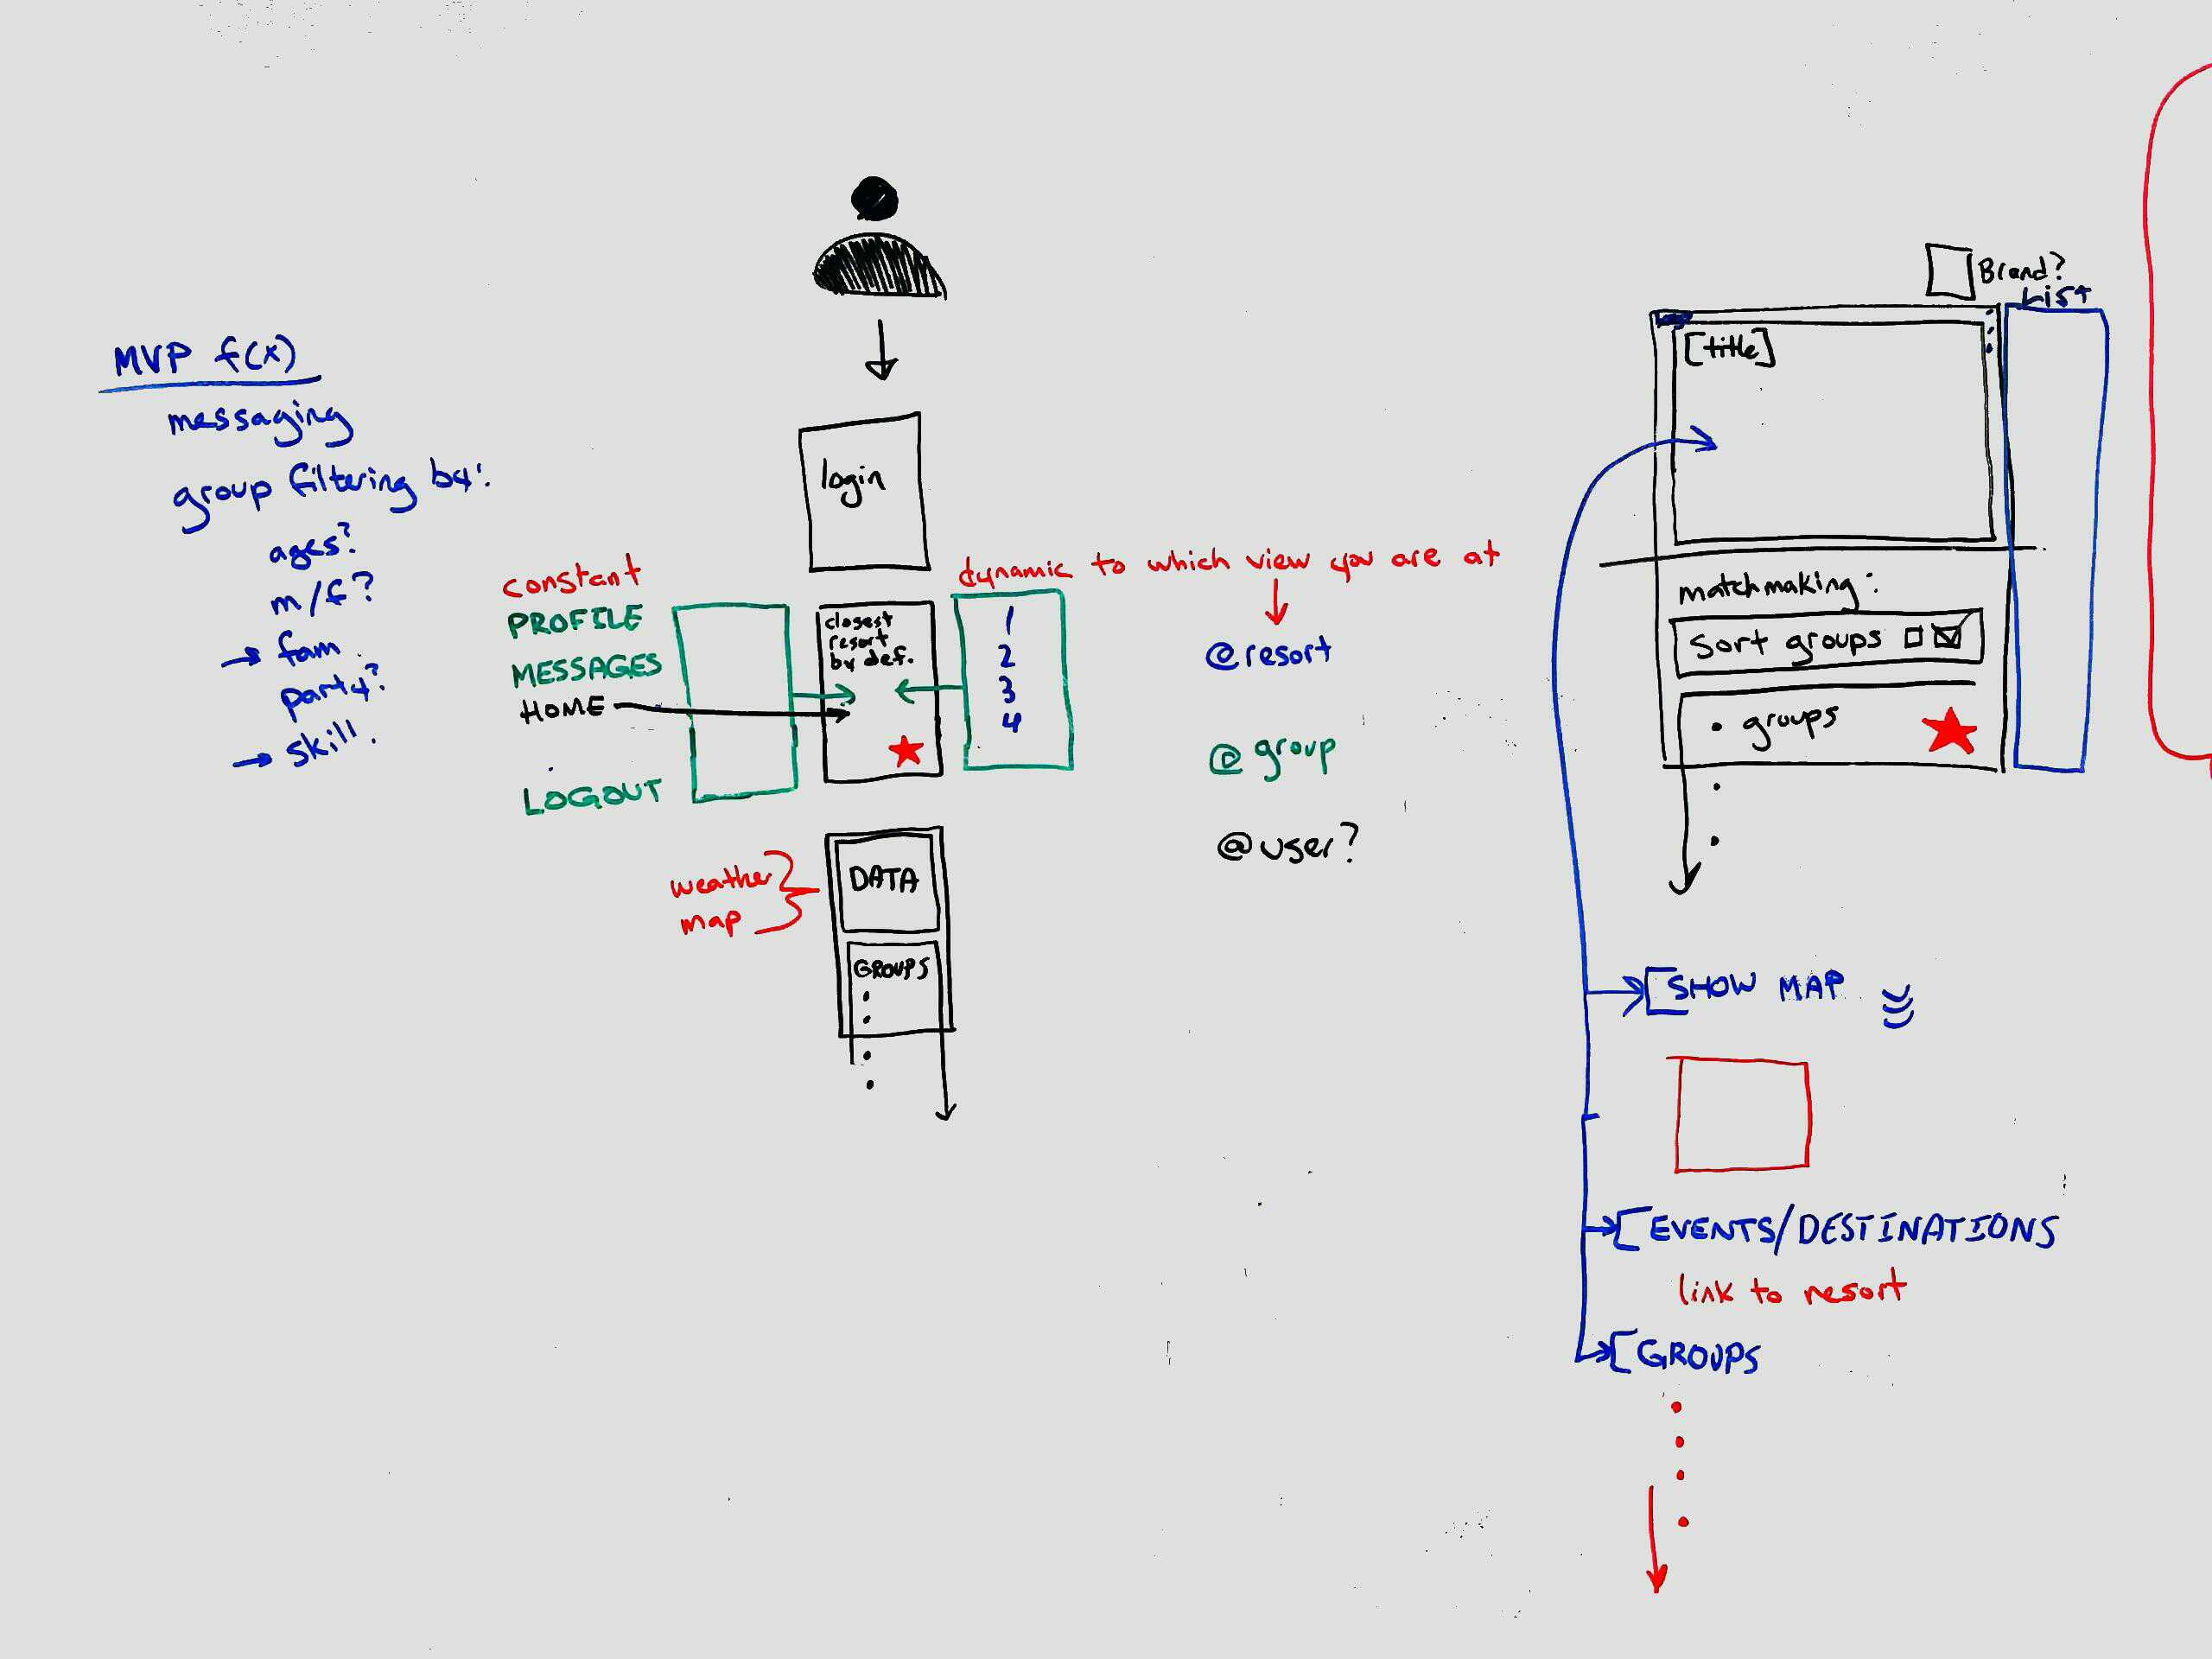 MVP f(x)
messaging
group filtering by:
ages?
m/f?
→ fam
party?
→ skill.
login
constant
PROFILE
MESSAGES
HOME
LOGOUT
closest
resort
by def.
dynamic to which view you are at
1
2
3
4
@resort
@group
@user?
weather
map
DATA
GROUPS
Brand?
List
[title]
matchmaking:
Sort groups
• groups
[SHOW MAP
[EVENTS/DESTINATIONS
link to resort
[GROUPS